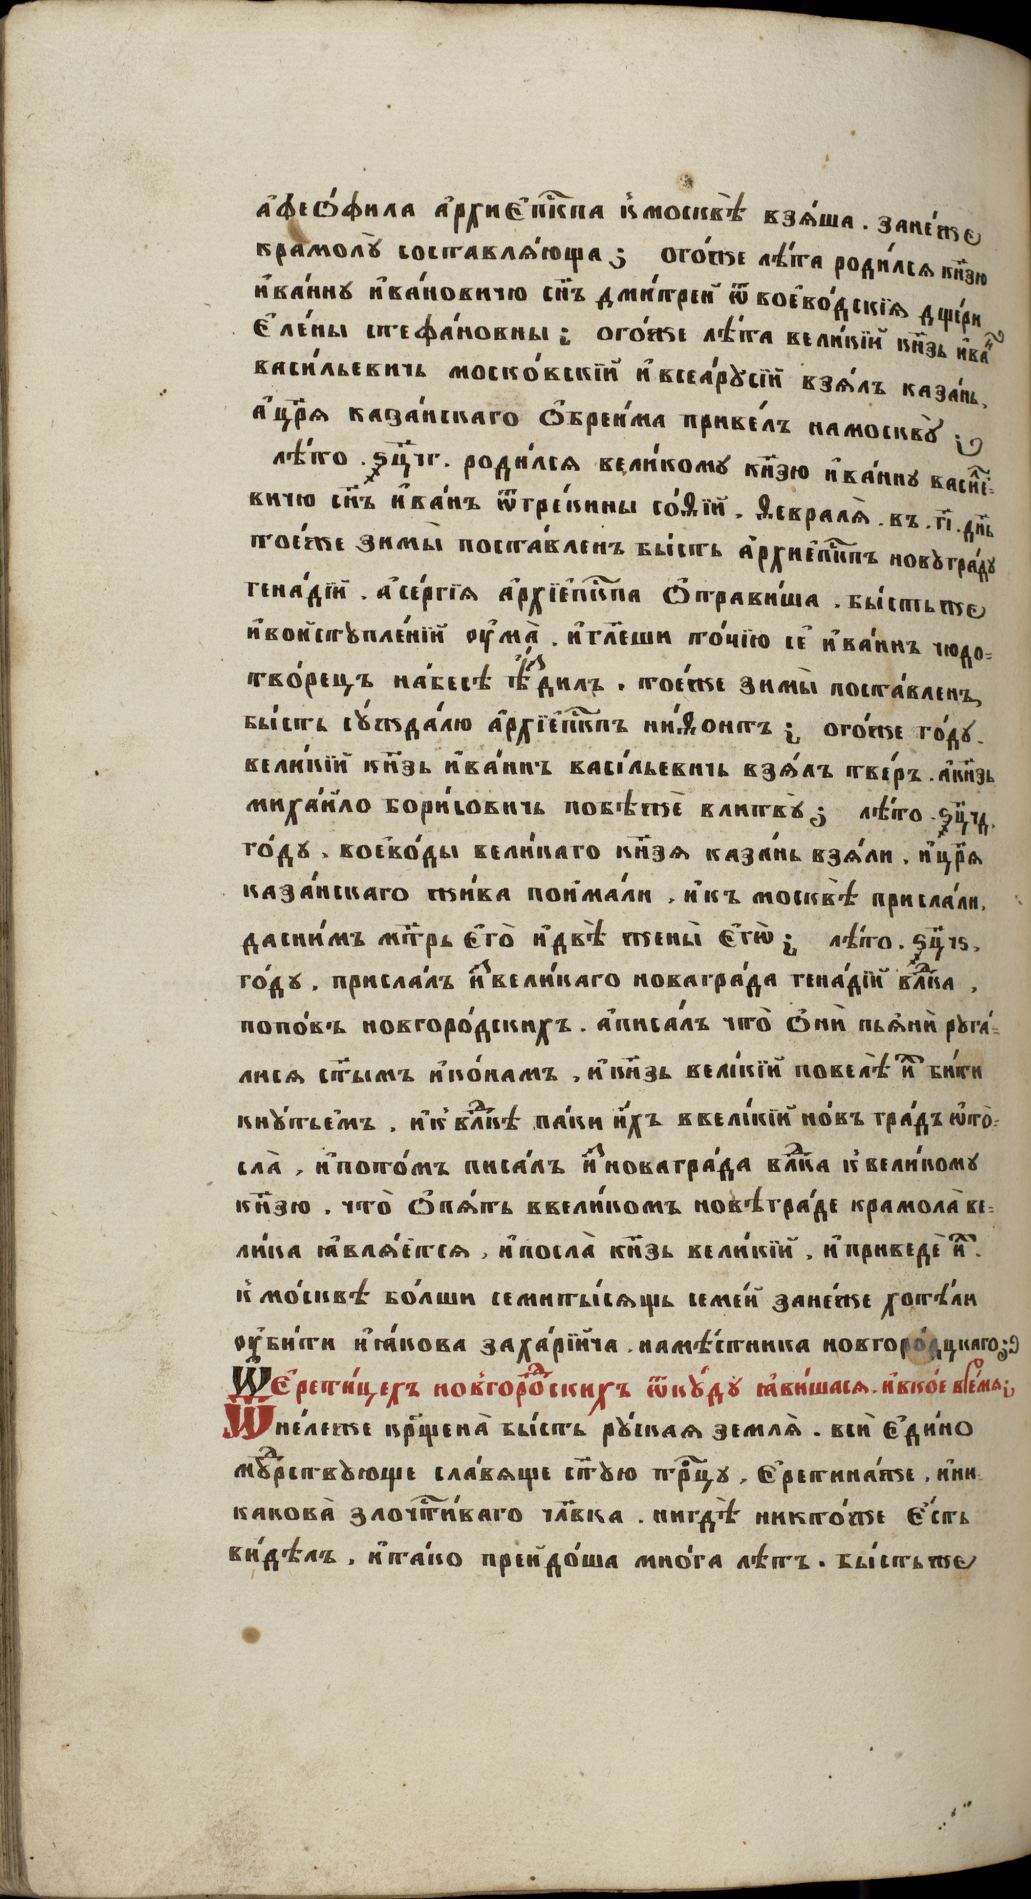 а҆феѻ́фила а҆рхиєпⷭ҇кпа к҆ москвѣ̀ взѧ́ша . зане́же
крамолꙋ̀ составлѧ́юща ; ᲂго́же лѣ́та роди́лсѧ кн҃зю
и҆ва́ннꙋ и҆ва́новичю сн҃ъ дми́трей ѿ воево́дскїѧ дще́ри
є҆ле́ны стефа́новны ; ᲂго́же лѣ́та вели́кїй кн҃зь и҆ва́ⷩ
васи́льевичь моско́вскїй и҆ всеа́рꙋсїй взѧ́лъ каза́нь,
а҆ цр҃ѧ каза́нскаго ѻ҆бреи́ма приве́лъ на москвꙋ̀ ;
лѣ́то . ҂ѕц҃чг . роди́лсѧ вели́комꙋ кн҃зю и҆ва́ннꙋ васи́лⷧе-
вичю сн҃ъ и҆ва́нъ ѿ греки́ны со́ѳїй . ѳевралѧ̀ . въ . г҃і . дн҃ь
тое́же зимы̀ поста́вленъ бы́сть а҆рхиеп҃кпъ новꙋгра́дꙋ
гена́дїй . а҆ се́ргїѧ а҆рхїеп҃кпа ѻ҆правиша . бы́стьже
и҆зостꙋпле́нїй ᲂу҆ма̀ . и҆ гл҃еши то́чїю се̑ и҆ва́ннъ чюдо-
тво́рецъ на́бесѣ ѣ҆́здилъ . тое́же зимы̀ поста́вленъ
бы́сть сꙋ́ждалю а҆рхїеп҃кпъ ни́ѳонтъ ; ᲂго́же го́дꙋ .
вели́кїй кн҃зь и҆ва́ннъ васи́льевичь взѧ́лъ тве́рь . а҆ кн҃зь
миха́йло бори́совичь побѣжѐ в литвꙋ̀ ; лѣ́то . ҂ѕц҃чд .
го́дꙋ . воево́ды вели́каго кн҃зѧ каза́нь взѧ́ли . и҆ цр҃ѧ
каза́нскаго жи́ва пои҆ма́ли , и҆ къ москвѣ̀ присла́ли ,
да с ни́мъ мт҃рь є҆го̀ и҆ двѣ̀ жены̀ є҆гѡ̀ ; лѣ́то . ҂ѕц҃чѕ .
го́дꙋ . присла́лъ и҆з вели́каго новагра́да гена́дїй влⷣка ,
попо́въ новгоро́дскихъ . а҆ писа́лъ что̀ ѻ҆нѝ пьѧнѝ рꙋга́-
лисѧ ст҃ымъ и҆ко́намъ , и҆ кн҃зь вели́кїй повелѣ̀ иⷯ би́ти
кнꙋ́тьемъ , и҆ к влⷣкѣ па́ки и҆́хъ в вели́кїй но́въ гра́дъ ѿто-
сла̀ , и҆ пото́мъ писа́лъ и҆з новагра́да влⷣка к вели́комꙋ
кн҃зю . что̀ ѻ҆пѧ́ть в вели́комъ новѣ́гра́де крамола̀ ве-
ли́ка ꙗ҆влѧ́етсѧ , и҆ посла̀ кн҃зь вели́кїй , и҆ приведѐ иⷯ .
к҆ мо́сквѣ бо́лши семиты́сѧщь семе́й зане́же хотѣ́ли
ᲂу҆би́ти и҆ꙗ́кова заха́рїйча . намѣ́стника новгоро́дцкаго ;
Ѡ҆ є҆рети́цехъ новгоро́дскихъ ѿкꙋ́дꙋ ꙗ҆ви́шасѧ . и҆ в ко́е вре́мѧ ;
Ѿне́леже кр҃щена̀ бы́сть рꙋ́скаѧ землѧ̀ . всѝ є҆ди́но
мꙋ́дрствꙋюще сла́вѧще ст҃ꙋю трⷪ҇цꙋ , є҆ретика́же , и҆ ни-
какова̀ злочтⷭ҇и́ваго чл҃вка . нигдѣ̀ никто́же є҆́сть
ви́дѣлъ , и҆ та́ко прейдо́ша мно́га лѣ́тъ . бы́стьже